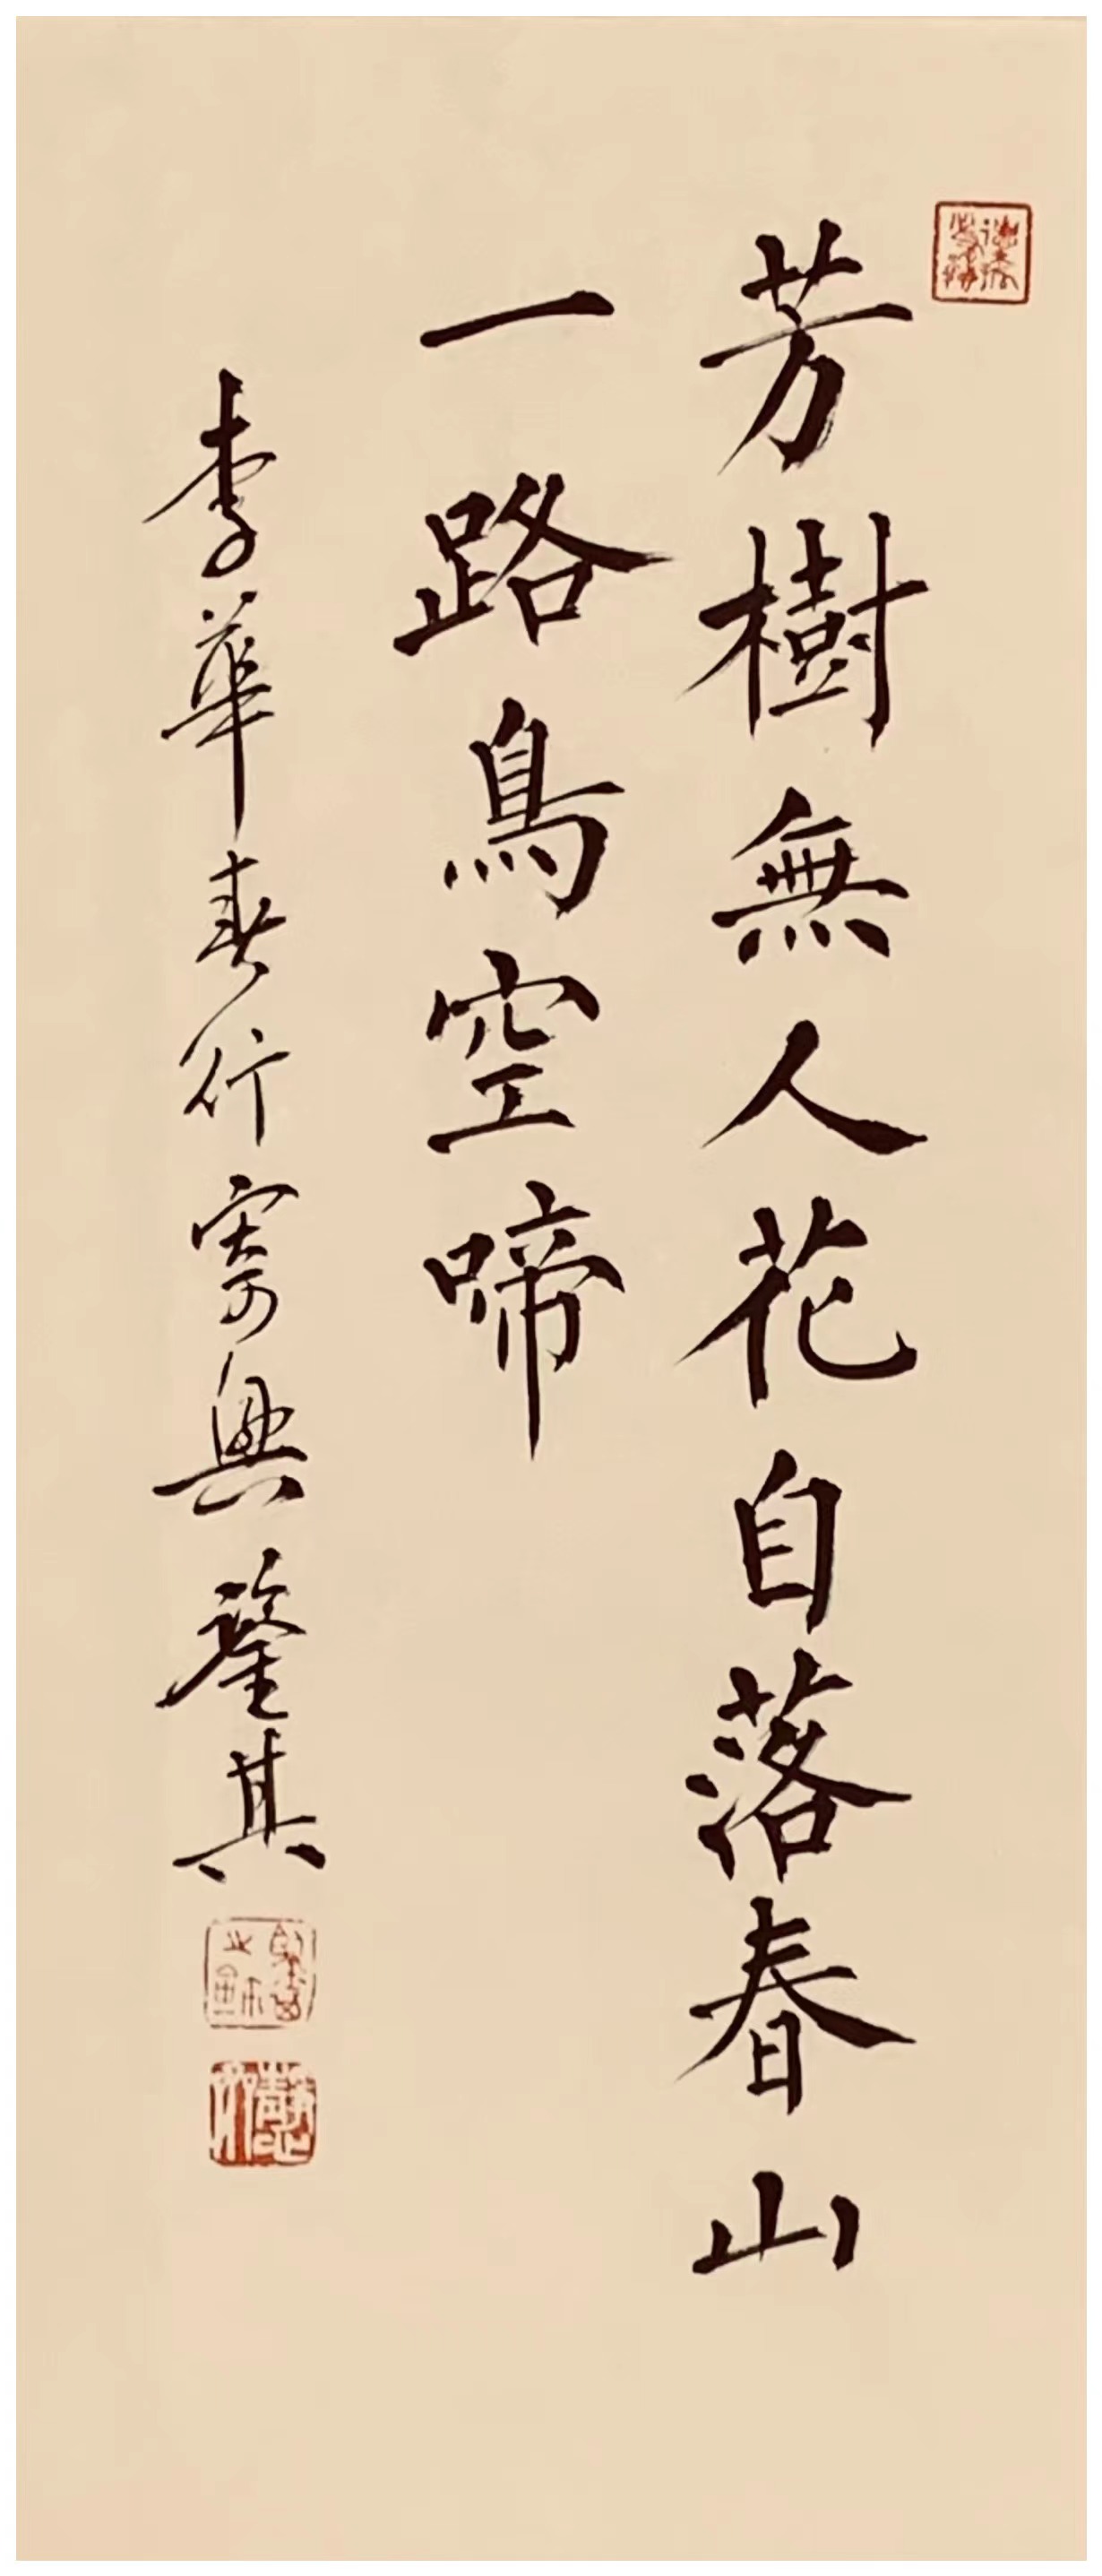 芳樹無人花自落春山
一路鳥空啼
李華春行寄興 其